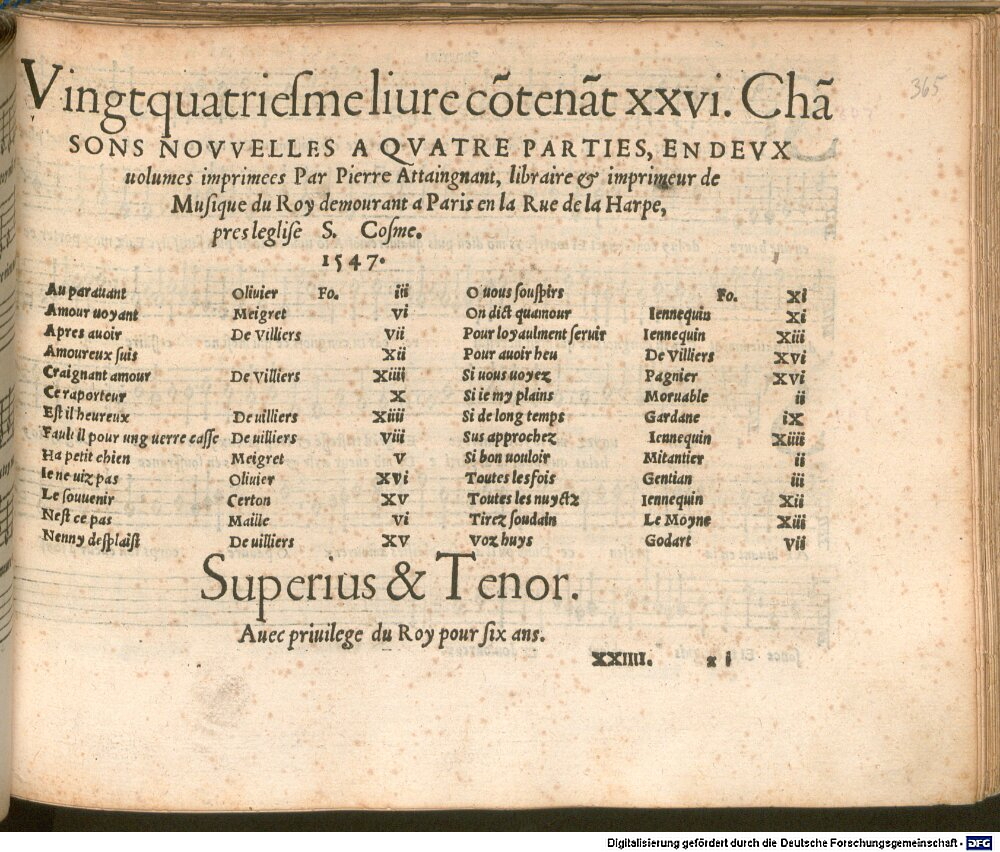 365
Vingtquatriesme liure cõtenãt xxvi. Chã
SONS NOVVELLES A QVATRE PARTIES, EN DEVX
uolumes imprimees Par Pierre Attaingnant, libraire & imprimeur de
Musique du Roy demourant a Paris en la Rue de la Harpe,
pres leglise S. Cosme.
1547.
Au parauant Olivier Fo. iii
Amour uoyant Meigret vi
Apres auoir De Villiers vii
Amoureux suis xii
Craignant amour De Villiers xiiii
Ce raporteur x
Est il heureux De uilliers xiiii
Fault il pour ung uerre casse De uilliers viii
Ha petit chien Meigret v
Ie ne uiz pas Olivier xvi
Le souuenir Certon xv
Nest ce pas Maille vi
Nenny desplaist De uilliers xv
O uous souspirs Fo. xi
On dict quamour Iennequin xi
Pour loyaulment seruir Iennequin xiii
Pour auoir heu De Villiers xvi
Si uous uoyez Pagnier xvi
Si ie my plains Moruable ii
Si de long temps Gardane ix
Sus approchez Iennequin xiiii
Si bon uouloir Mitantier ii
Toutes les fois Gentian iii
Toutes les nuyctz Iennequin xii
Tirez soudain Le Moyne xiii
Voz huys Godart vii
Superius & Tenor.
Auec priuilege du Roy pour six ans.
XXIIII. z i
Digitalisierung gefördert durch die Deutsche Forschungsgemeinschaft - DFG